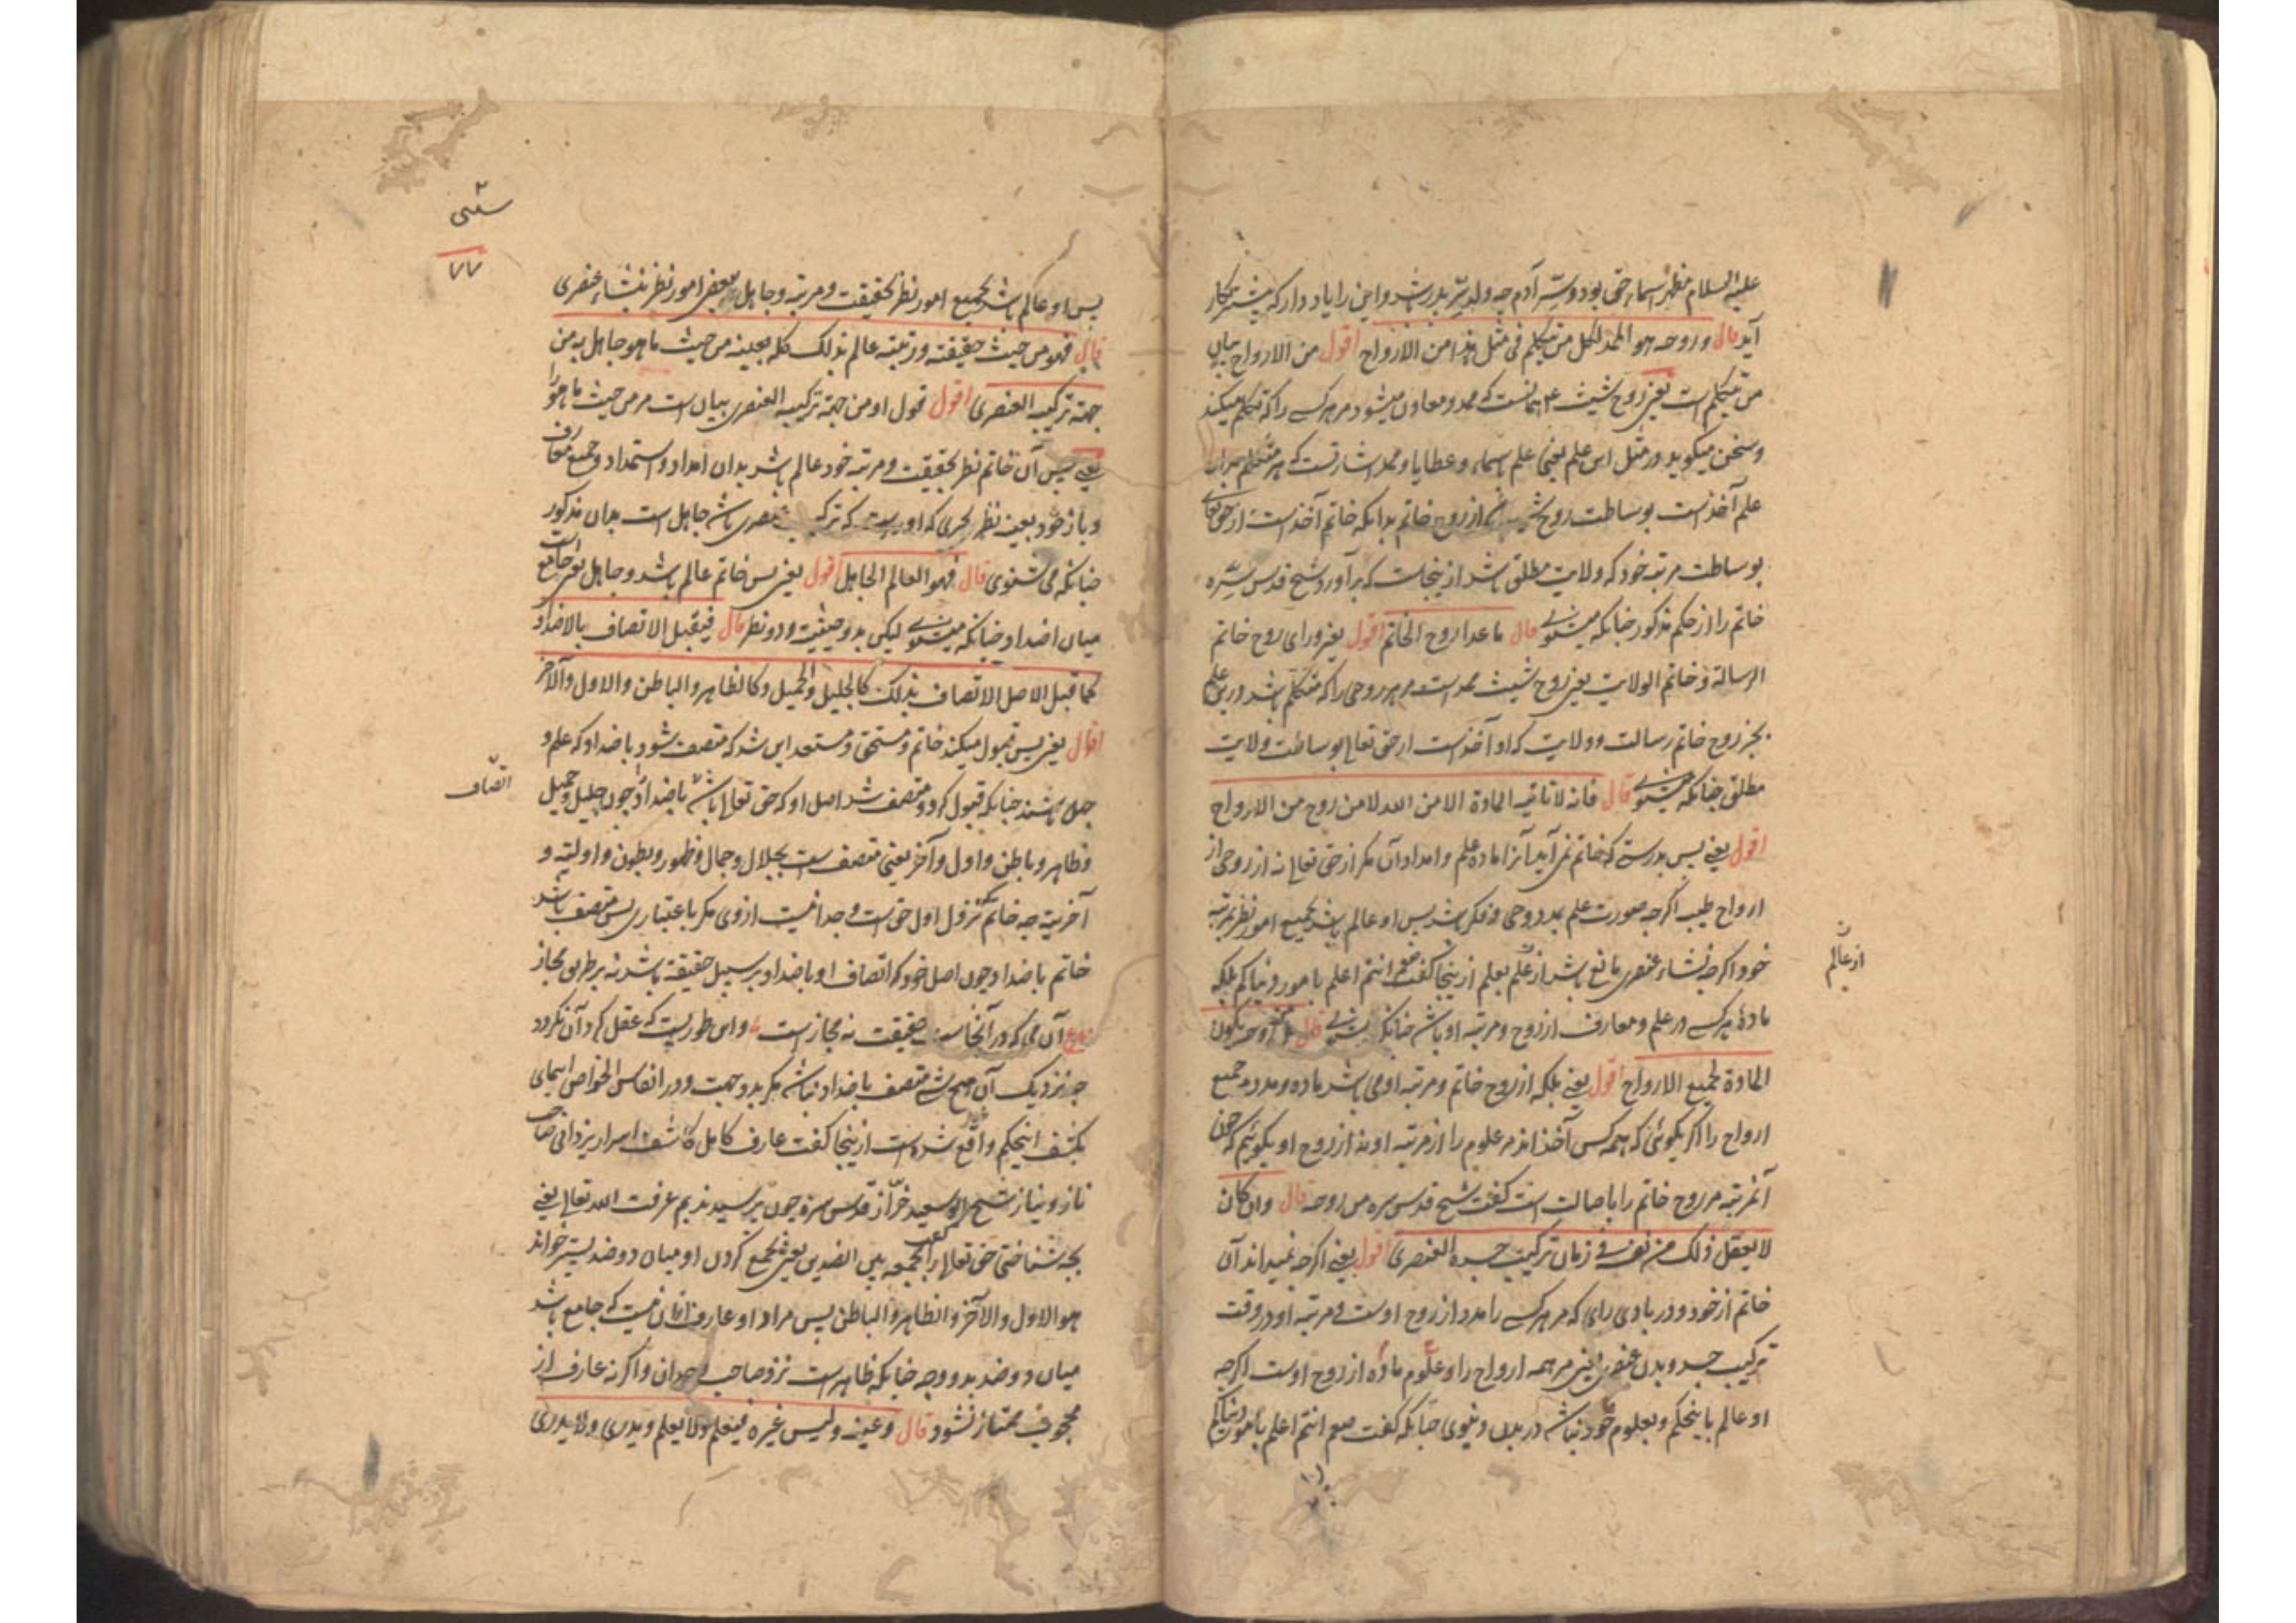 علیه السلام مظهر اسماء حق بود و سیّر آدم چه ولد سرّ پدر باشد و این را یاد دار که پیشتر بکار
آید قال و روحه هو الممد لکل من یتکلم فی مثل هذا من الارواح اقول من الارواح بیان
من یتکلم است یعنی روح شیث ع همانست که ممد و معاون میشود مر هر کسی را که تکلم میکند
و سخن میگوید در مثل این علم یعنی علم اسماء و عطایا و محل اشارتست که هر متکلم
علم آخذ است بوساطت روح از روح خاتم بدانکه خاتم آخذ است از حق تعالی
بوساطت مرتبه خود که ولایت مطلق باشد ازینجاست که برآورد شیخ قدس سره
خاتم را از حکم مذکور چنانکه میشنوی قال ما عدا روح الخاتم اقول یعنی ورای روح خاتم
الرسالة و خاتم الولایت یعنی روح شیث ممد است مر هر روحی را که متکلم باشد درین علم
بجز روح خاتم رسالت و ولایت که او آخذ است از حق تعالی بوساطت ولایت
مطلق چنانکه میشنوی قال فانه لا تاتیه المادة الا من الله لا من روح من الارواح
اقول یعنی پس بدرستی که خاتم نمی آید آنرا ماده علم و امداد آن مگر از حق تعالی نه از روحی از
ارواح طیبه اگرچه صورت علم بمدد وحی و فکر باشد پس او عالم باشد بجمیع امور نظر بمرتبه
خود اگرچه نشاء عنصری مانع باشد از علم بعلم ازینجا گفت صعم انتم اعلم بامور دنیاکم بلکه
مادۀ هر کسی در علم و معارف از روح و مرتبه او باشد چنانکه میشنوی قال بل من روحه یکون
المادة لجمیع الارواح اقول یعنی بلکه از روح خاتم و مرتبه او می باشد ماده و مدد جمیع
ارواح را اگر بگوئی که همه کس آخذ اند مر علوم را از مرتبه او نه از روح او بگوئیم که چون
آنمرتبه مر روح خاتم را باصالت است گفت شیخ قدس سره من روحه قال وان کان
لا یعقل ذلک من نفسه فی زمان ترکیب جسده العنصری اقول یعنی اگرچه نمیداند آن
خاتم از خود و در بادی رای که مر هر کسی را مدد از روح اوست و مرتبه او در وقت
ترکیب جسد و بدن عنصری یعنی مر همه ارواح را و علوم ماده از روح اوست اگرچه
او عالم باینحکم و بعلوم خود نباشد در بدن دنیوی چنانکه گفت صعم انتم اعلم بامور دنیاکم
از عالم
پس او عالم باشد بجمیع امور نظر بحقیقت و مرتبه و جاهل ببعض امور نظر بنشاء عنصری
قال فهو من حیث حقیقته و رتبته عالم بذلک کله بعینه من حیث ما هو جاهل به من
جهة ترکیبه العنصری اقول قول او من جهة ترکیبه العنصری بیان است مر من حیث ما هو را
یعنی پس آن خاتم نظر بحقیقت و مرتبه خود عالم باشد بدان امداد و استمداد و جمیع معارف
و باز خود بعینه نظر که اوراست که ترکیب عنصری باشد جاهل است بدان مذکور
چنانکه می شنوی قال فهو العالم الجاهل اقول یعنی پس خاتم عالم باشد و جاهل یعنی جامع است
میان اضداد چنانکه میشنوی لیکن بدو حیثیت و دو نظر قال فیقبل الاتصاف بالاضداد
کما قبل الاصل الاتصاف بذلک کالجلیل و الجمیل و کالظاهر و الباطن و الاول و الآخر
اقول یعنی پس قبول میکند خاتم و مستحق و مستعد این شد که متصف شود باضداد که علم و
جهل باشند چنانکه قبول کرد و متصف شد اصل او که حق تعالی باشد باضداد چون جلیل و جمیل
و ظاهر و باطن و اول و آخر یعنی متصف است بجلال و جمال و ظهور و بطون و اولیّة و
آخریة چه خاتم تنزل اول حق است و جدا نیست از وی مگر باعتباری پس متصف باشد
خاتم باضداد چون اصل خود که اتصاف او باضداد بر سبیل حقیقة باشد نه بر طریق مجاز
آن می که در آنجاست حقیقت نه مجاز است و این طوریست که عقل گرد آن نگردد
چه نزدیک آن هیچ شیء متصف باضداد نباشد مگر بدو جهت و در انفاس الخواص ایمای
بکشف اینحکم واقع شده است ازینجا گفت عارف کامل کاشف اسرار یزدانی صاحب
ناز و نیاز شیخ ابو سعید خراز قدس سره چون پرسیدندیم عرفت الله تعالی یعنی
بچه شناختی حق تعالی را گفت بجمعه بین الضدین یعنی بجمع کردن او میان دو ضد پستر خواند
هو الاول و الآخر و الظاهر و الباطن پس مراد او عارف ازان نیست که جامع باشد
میان دو ضد بدو وجه چنانکه ظاهر است نزد صاحب وجدان و اگر نه عارف از
محجوب ممتاز نشود قال و عینه و لیس غیره فیعلم و لا یعلم و یدری و لا یدری
۷۷
اتصاف